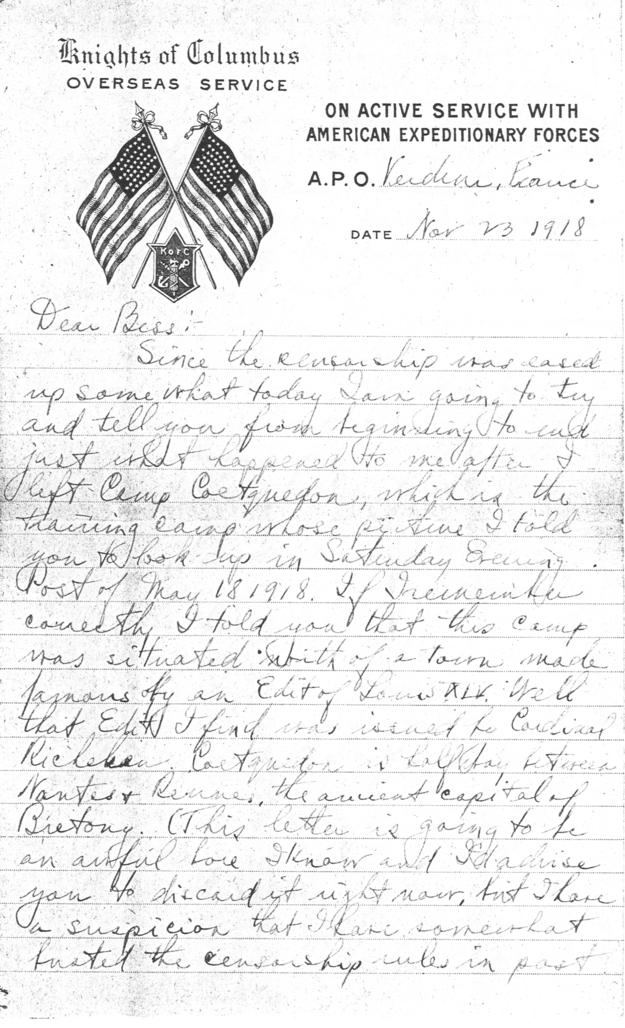 Knights of Columbus
OVERSEAS SERVICE
ON ACTIVE SERVICE WITH
AMERICAN EXPEDITIONARY FORCES
A.P.O. Verdun, France
DATE Nov 23 1918
K of C
Dear Bess:-
Since the censorship was eased
up somewhat today I am going to try
and tell you from beginning to end
just what happened to me after I
left Camp Coetquedon, which is the
training camp whose picture I told
you to look up in Saturday Evening
Post of May 18 1918. If I remember
correctly I told you that this camp
was situated of a town made
famous by an Edit of Louis XIV. Well
that Edit I find was issued by Cardinal
Richelieu. Coetquedon is half way between
Nantes & Rennes, the ancient capital of
Bretony. (This letter is going to be
an awful bore I know and I'd advise
you to discard it right now, but I have
a suspicion that I have somewhat
busted the censorship rules in past